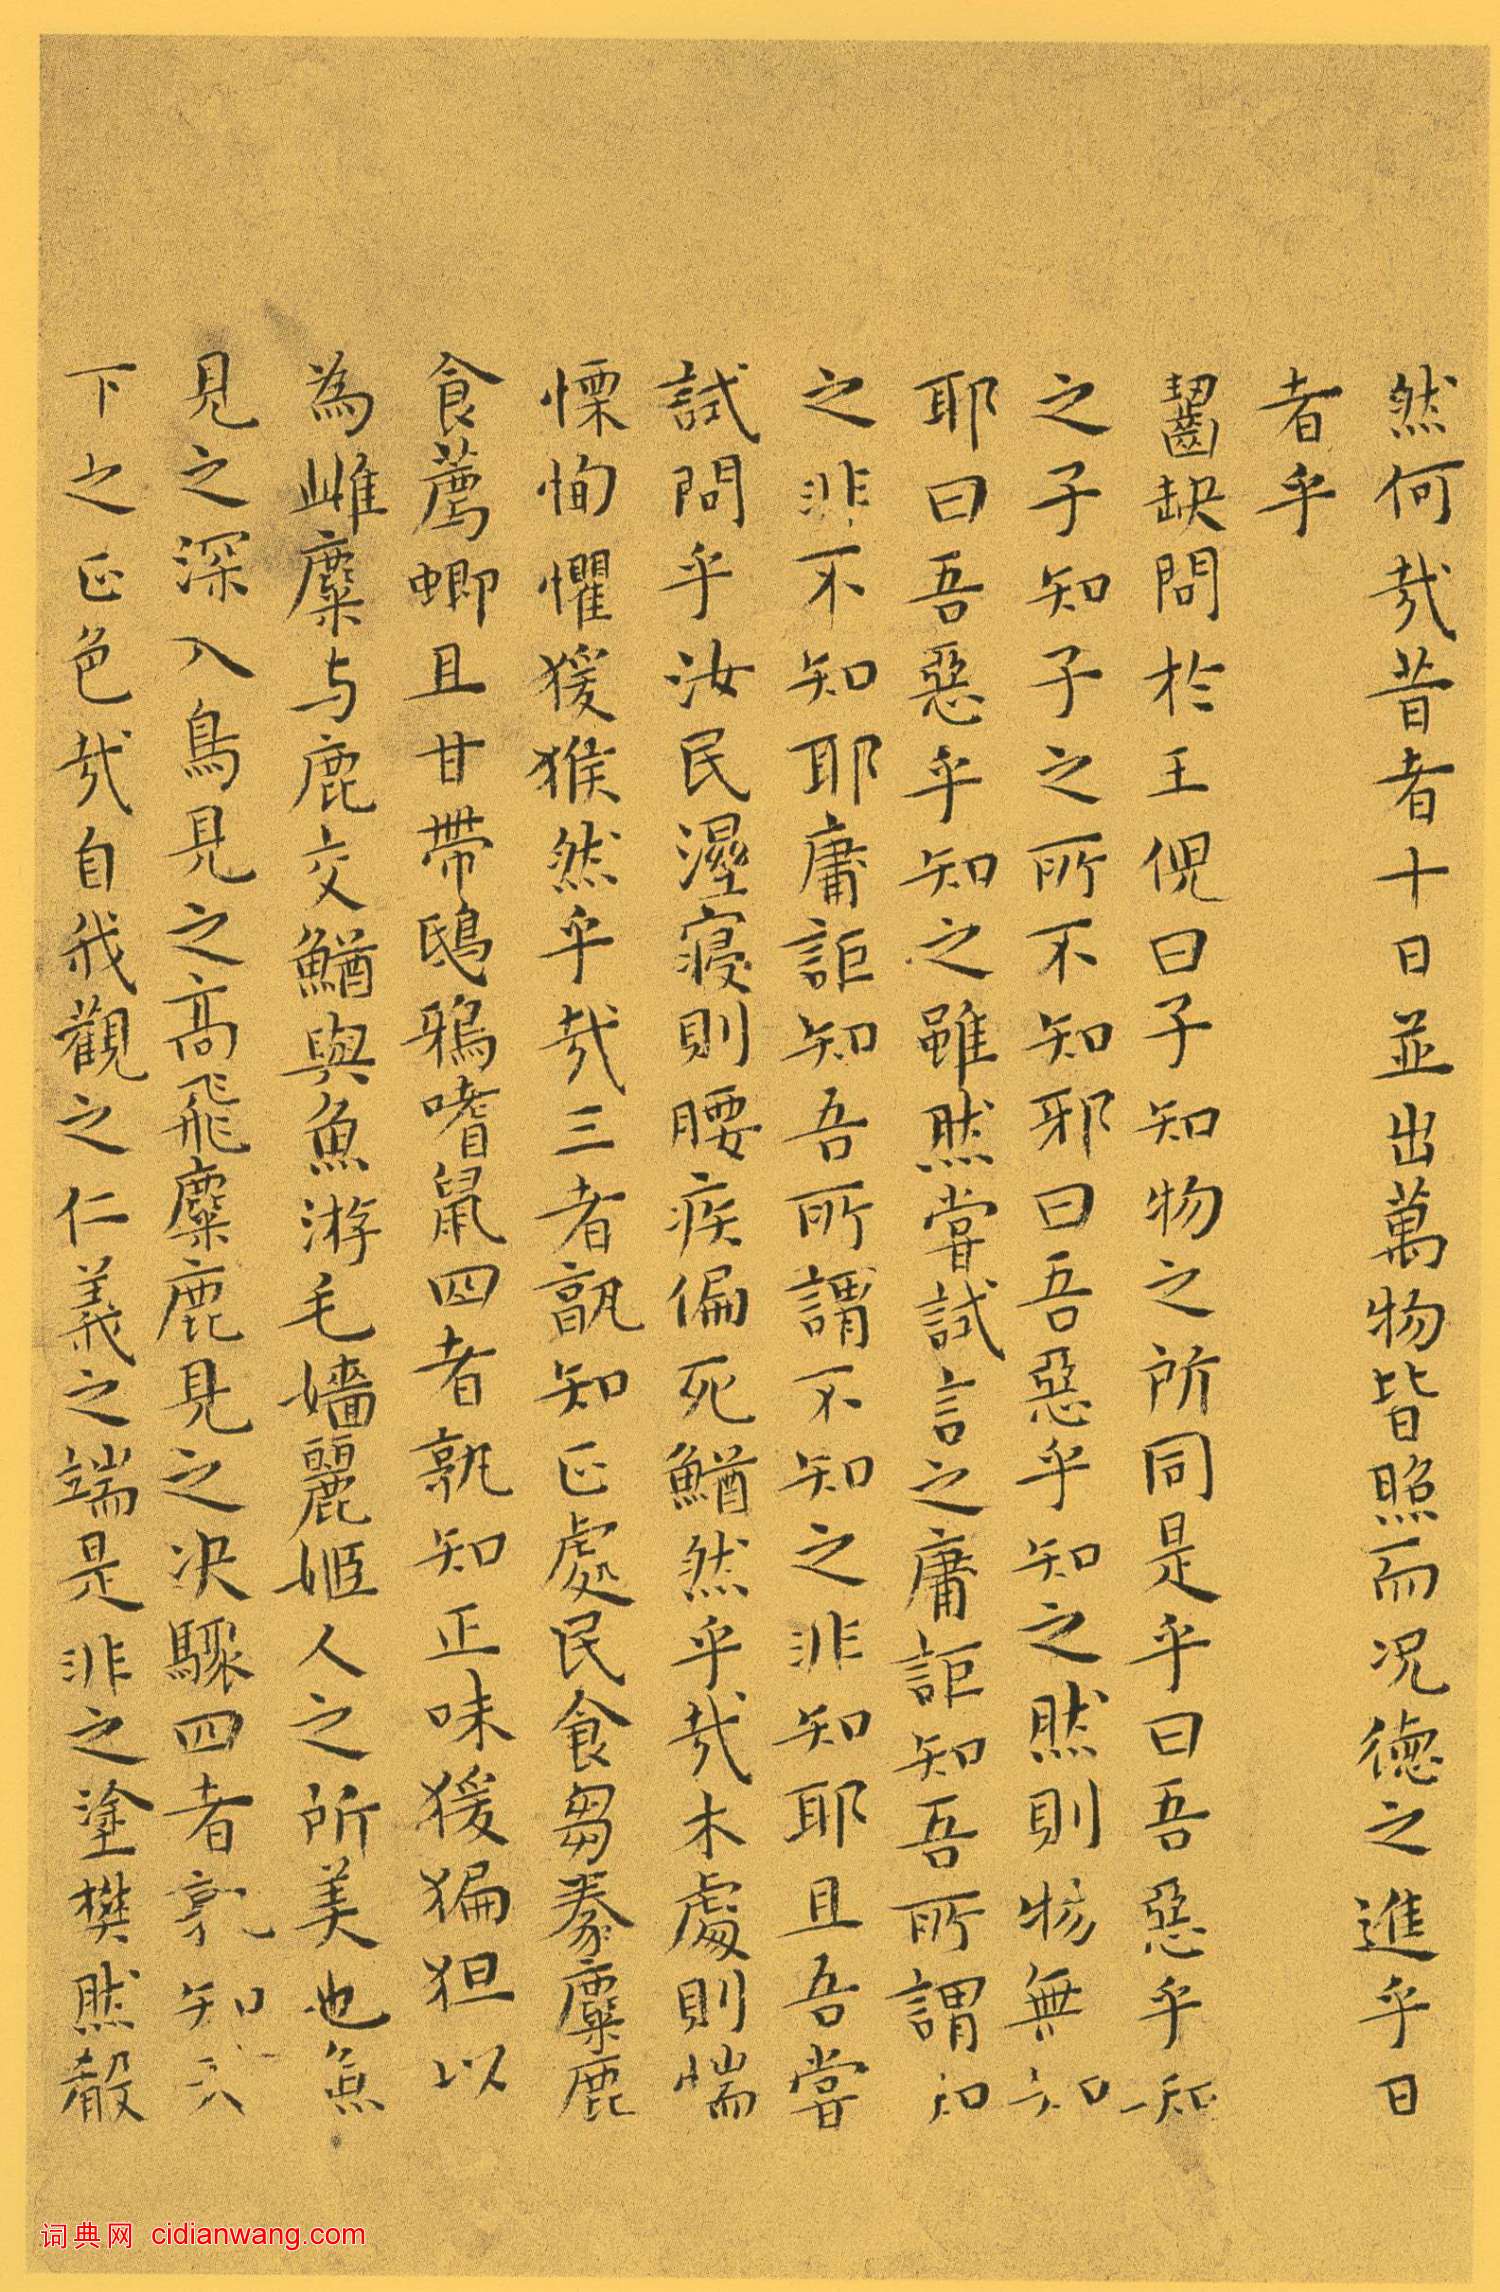 然何哉昔者十日並出萬物皆照而况德之進乎日
者乎
齧缺問於王倪曰子知物之所同是乎曰吾惡乎知
之子知子之所不知邪曰吾惡乎知之然則物無知
耶曰吾惡乎知之雖然嘗試言之庸詎知吾所謂知
之非不知耶庸詎知吾所謂不知之非知耶且吾嘗
試問乎汝民溼寢則腰疾偏死鰌然乎哉木處則惴
慄恂懼猨猴然乎哉三者孰知正處民食芻豢麋鹿
食薦蝍且甘帶鴟鴉嗜鼠四者孰知正味猨猵狚以
為雌麋与鹿交鰌與魚游毛嬙麗姬人之所美也魚
見之深入鳥見之高飛麋鹿見之决驟四者孰知天
下之正色哉自我觀之仁義之端是非之塗樊然殽
词典网 cidianwang.com